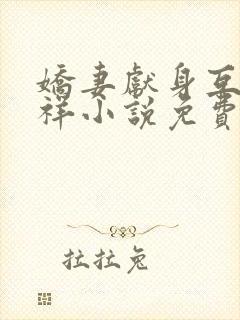 嬌妻獻身互
祥小說免費
拉拉兔